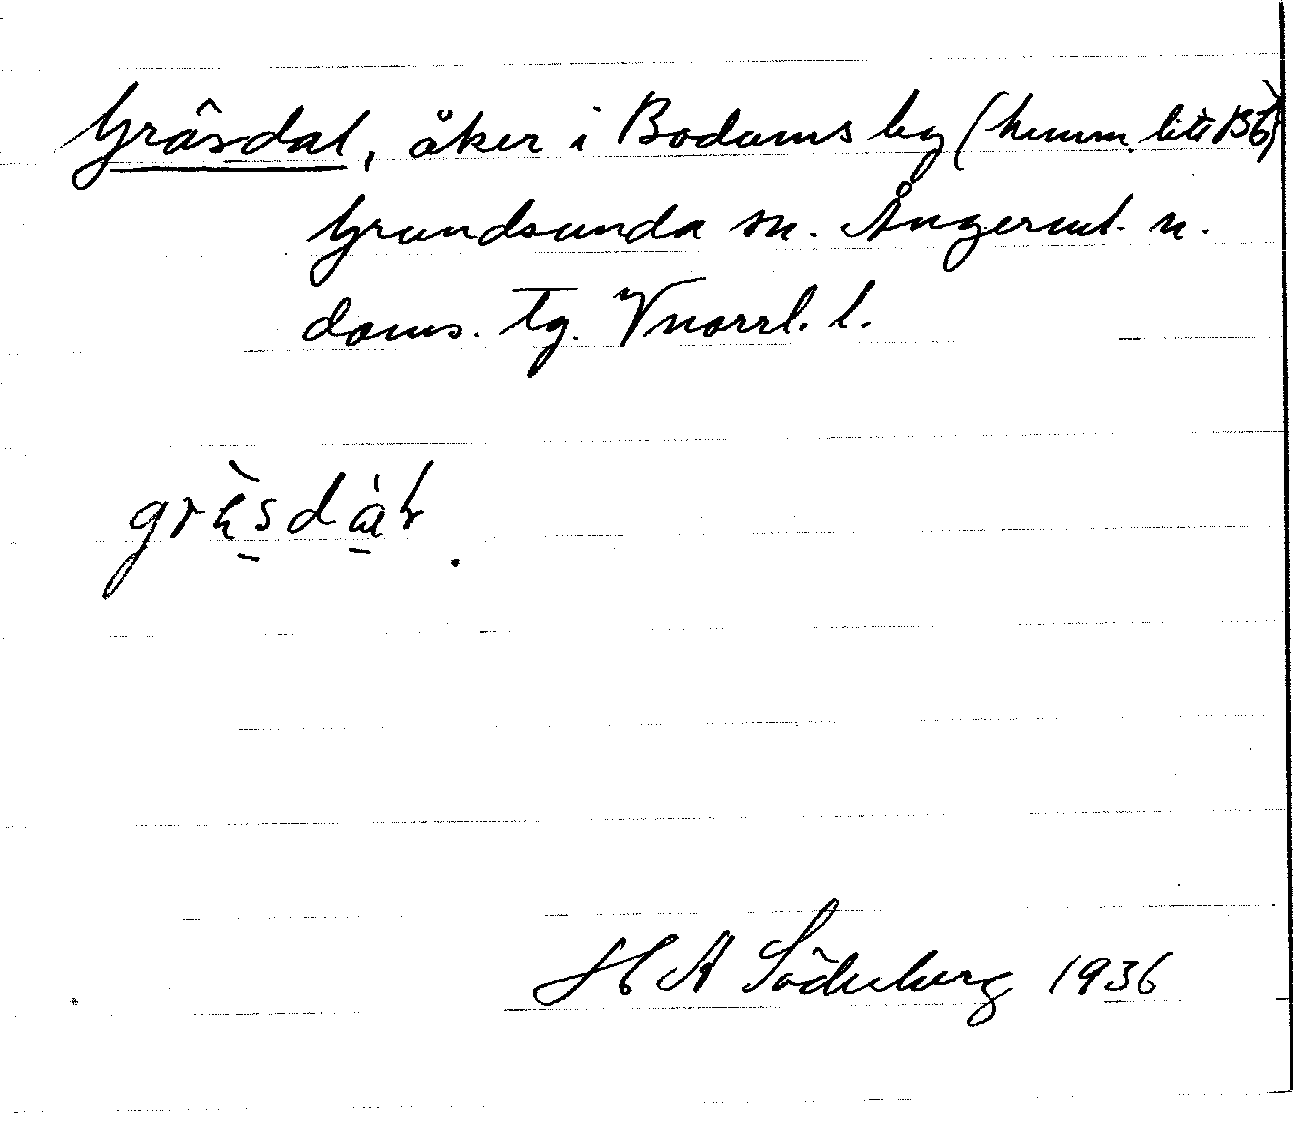 Gräsdal, åker i Bodums by (hemm. litt B36)
Grundsunda sn. Ångerml. n.
doms. tg. Vnorrl. l.
H A Söderberg 1936